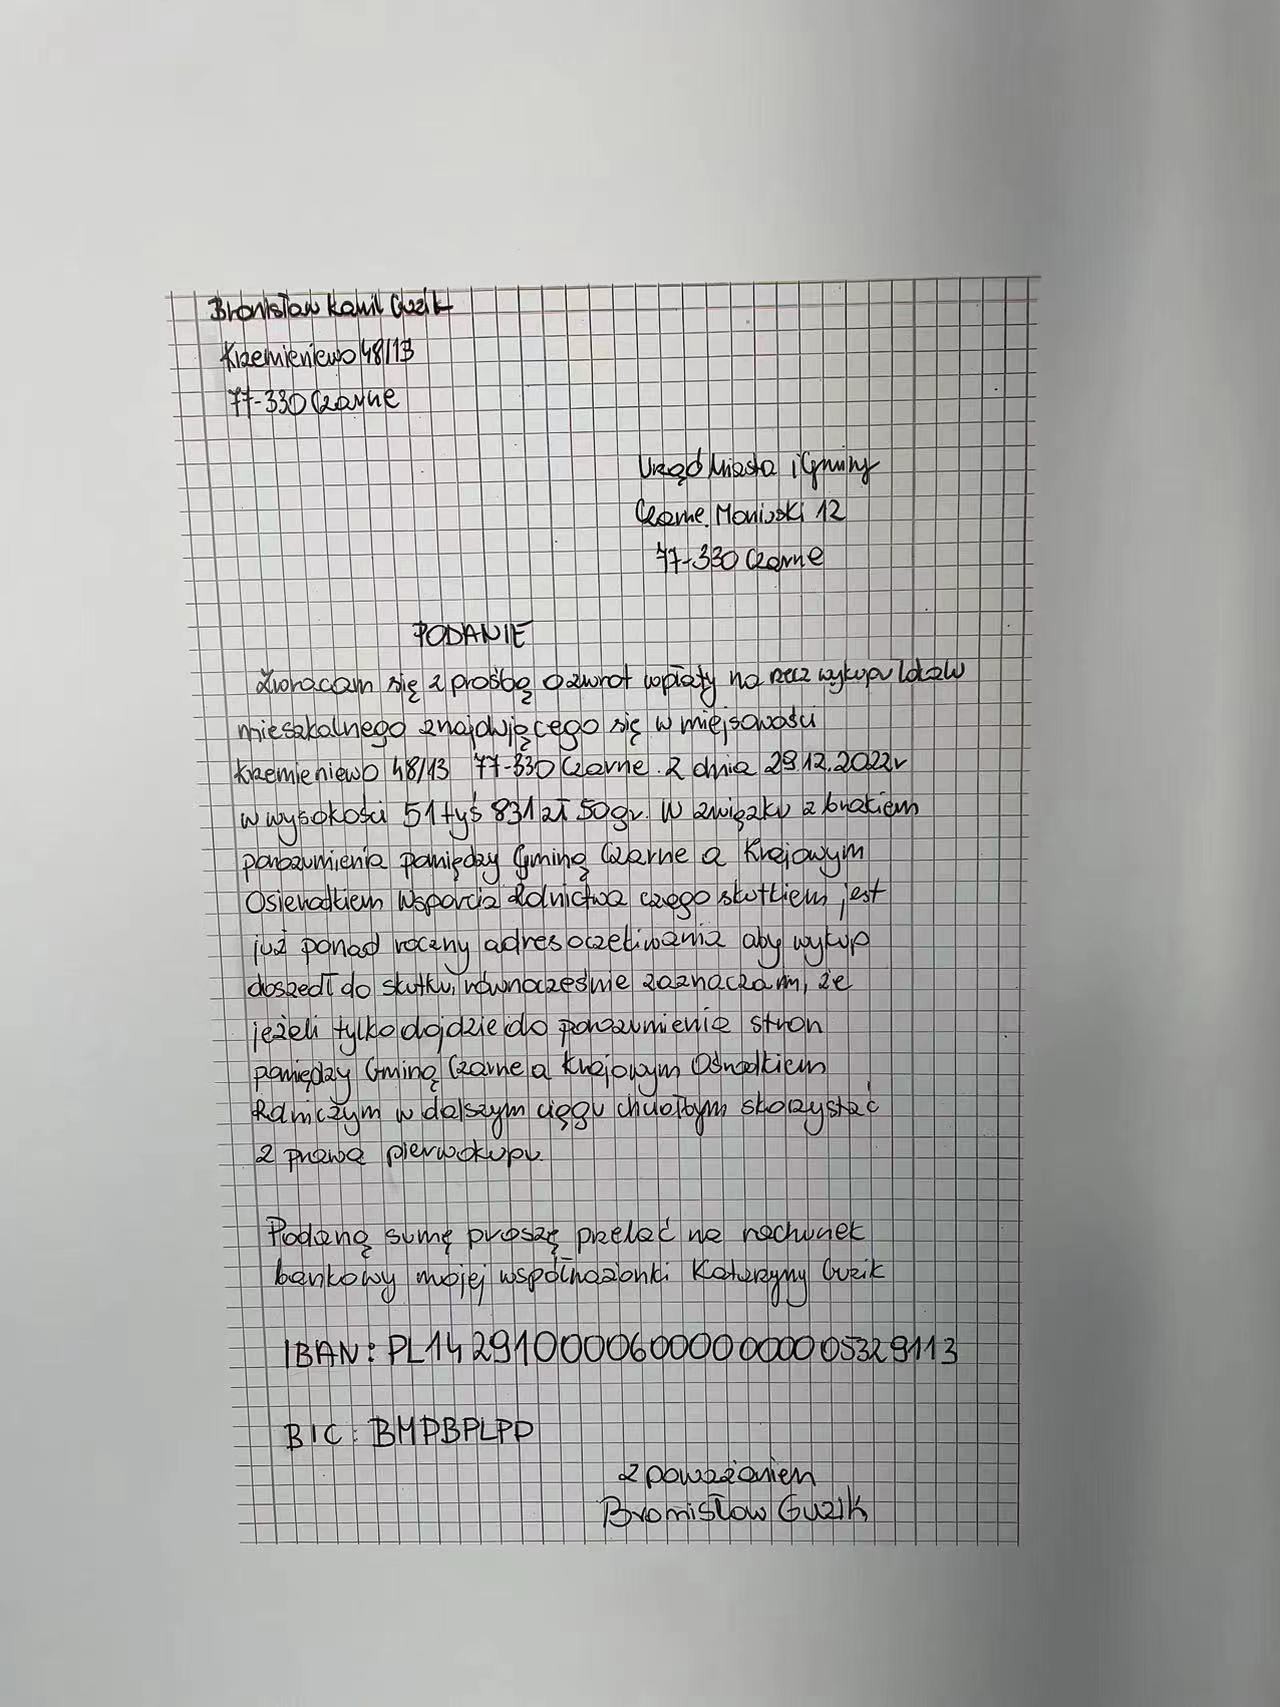 Bronisław Kamil Guzik
Krzemieniewo 48/13
77-330 Czarne
Urząd Miasta i Gminy
Czarne. Moniuszki 12
77-330 Czarne
PODANIE
Zwracam się z prośbą o zwrot wpłaty na rzecz wykupu lokalu
mieszkalnego znajdującego się w miejsowości
Krzemieniewo 48/13 77-330 Czarne. z dnia 29.12.2022r
w wysokości 51 tyś 831 zł 50 gr. W związku z brakiem
porozumienia pomiędzy Gminą Czarne a Krajowym
Osierodkiem Wsparcia Rolnictwa czego skutkiem jest
już ponad roczny adres oczekiwania aby wykup
doszedł do skutku, równocześnie zaznaczam, że
jeżeli tylko dojdzie do porozumienia stron
pomiędzy Gminą Czarne a Krajowym Ośrodkiem
Rolniczym w dalszym ciągu chciałbym skorzystać
z prawa pierwokupu.
Podaną sumę proszę przelać na rachunek
bankowy mojej współmałżonki Katarzyny Guzik
IBAN: PL14 29100006000000000 05329113
BIC: BMPBPLPP
z poważaniem
Bronisław Guzik